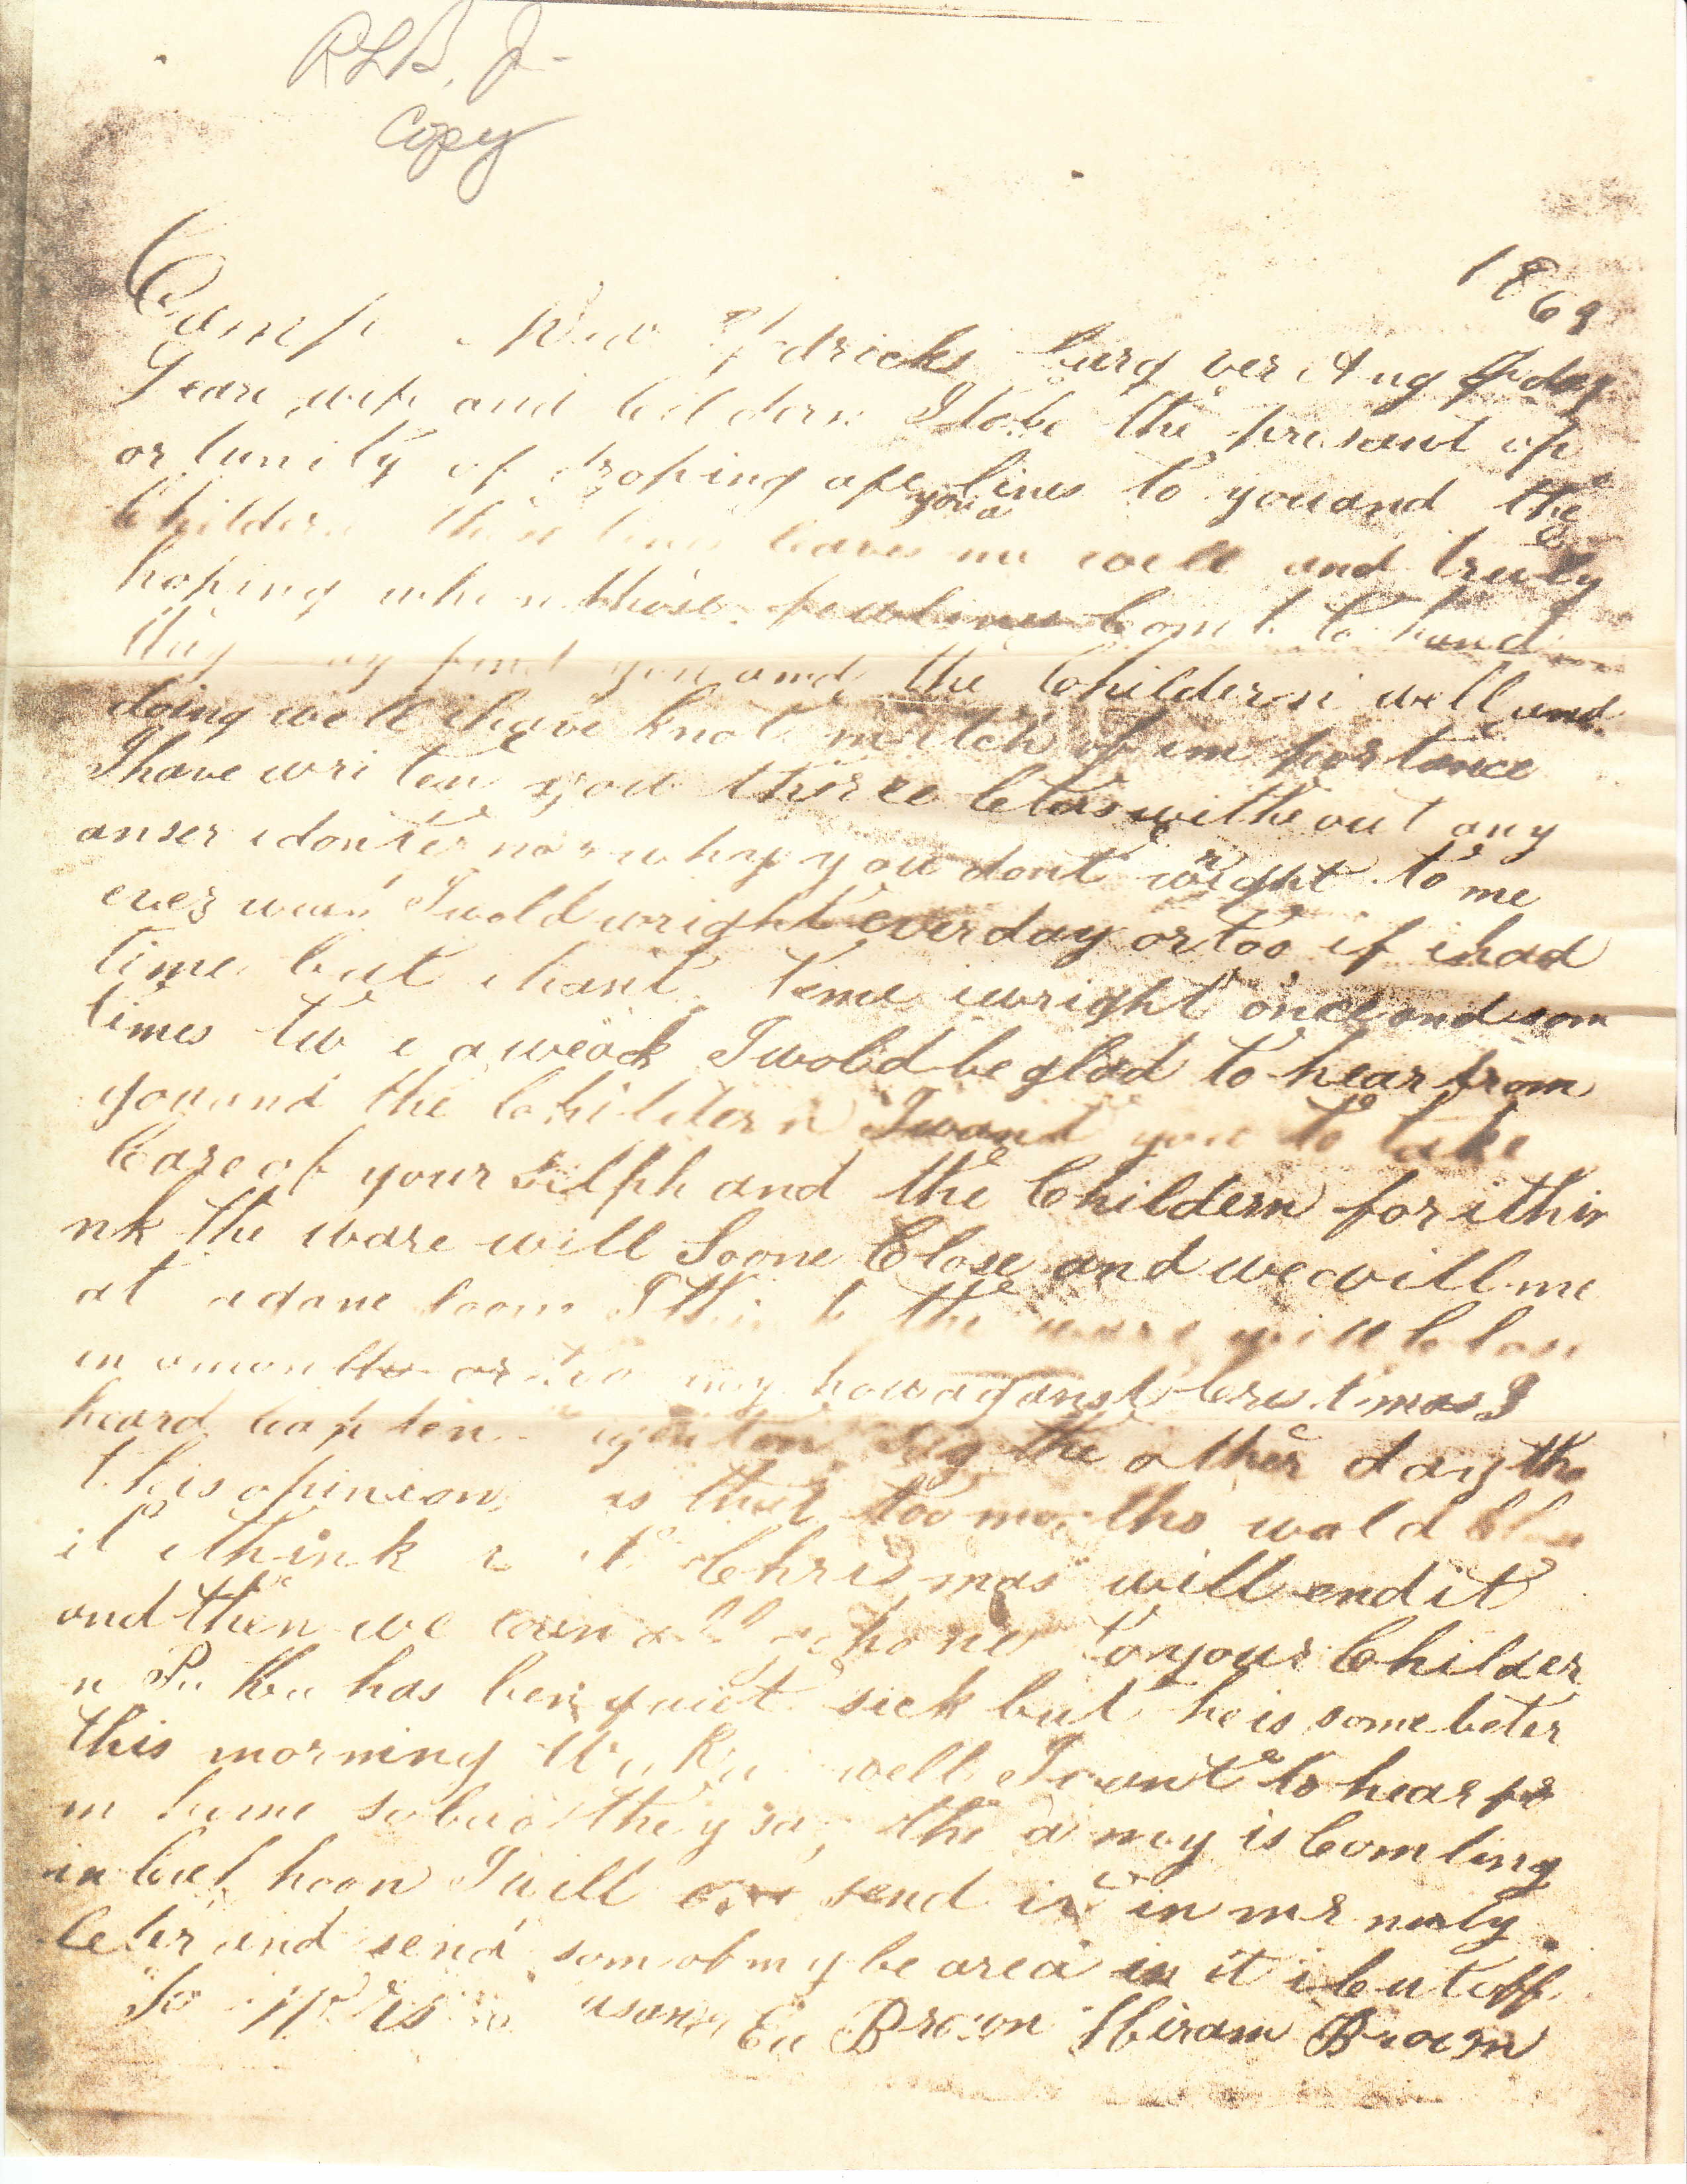 RLB, Jr
Copy
1869
Camp dricks burg ver Aug day
Deare wife and Childern I take the present op
or tunity of droping afew lines to you and the
you a
Childern these lines leaves me well and truly
hoping when those few lines Come to hand
they may find you and the Childern well and
doing well i have knot mutch of im portance
I have wri ten you three leters without any
anser i dont no whay you dont wright to me
I wold wright ever day or too if i had
time but i hant time i wright once and som
times a weack I wold be glad to hear from
you and the Childern I want you to take
Care of your silph and the Childern for i thin
nk the ware will Soone Close and we will me
at a gane soon I think the ware will Close
in a month or too my how a ganst Cristmas I
heard Capten say the other day tha
t his opinion is that too months wold Close
it i think Chrismas will end it
and then we can all home to your Childer
n has ben quiet sick but he is some beter
this morning well I want to hear fro
m home so bad they say the a my is Comling
in I will send in mr
leter and send som of my be ard in it i Cut off
Brown Hiram Brown